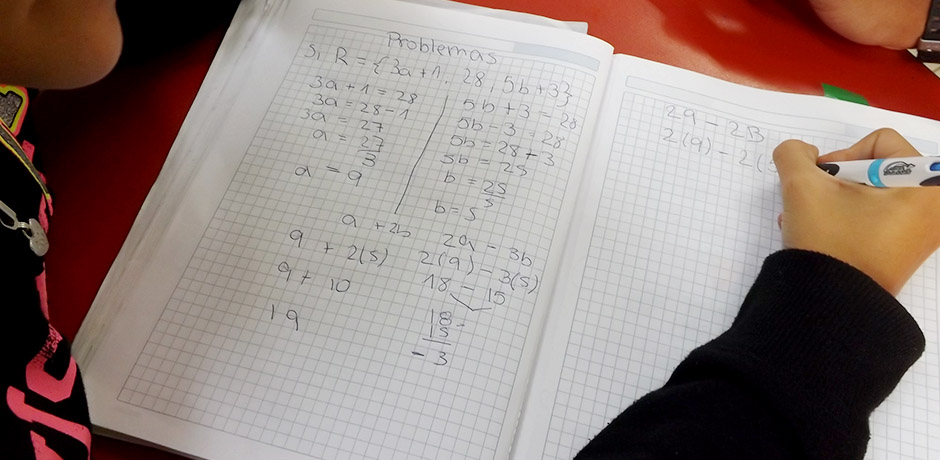 Problemas
Si R = {3a + 1, 28, 5b + 3}
3a + 1 = 28
3a = 28 - 1
3a = 27
a = 27/3
a = 9
5b + 3 = 28
5b - 3 = 28
5b = 28 + 3
5b = 25
b = 25/5
b = 5
a + 2b
9 + 2(5)
9 + 10
19
2a - 3b
2(9) - 3(5)
18 - 15
18 -
15
- 3
2a - 2B
2(9) - 2(5